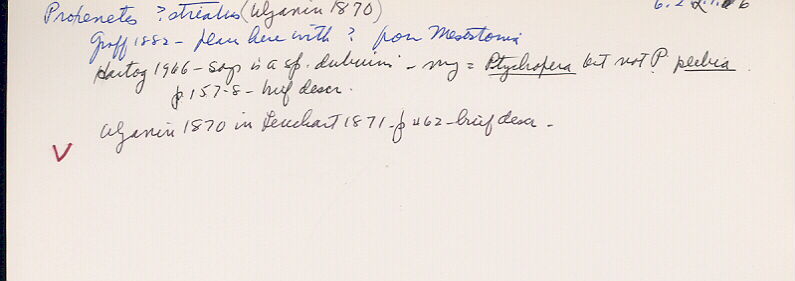 Proxenetes ? striatus (Uljanin 1870)
Graff 1882 – places here with ? from Mesostoma
Hartog 1966 – says is a sp. dubium – may = Ptychopera but not P. plebeia
p 157-8 – brief descr.
Uljanin 1870 in Leuckart 1871 – p 462 – brief descr –